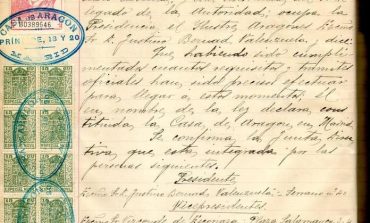 CASA DE ARAGON
B0389646
PRÍNCIPE, 18 Y 20
MADRID
gado de la Autoridad, ocupa la
Presidencia el Ilustre Aragonés Excmo.
Sr. D. Justino Bernad Valenzuela, dice:
Que habiendo sido cumpli-
mentados cuantos requisitos y trámites
oficiales han sido preciso efectuar
para llegar a este momento, él
en nombre de la ley declara cons-
tituida la Casa de Aragón en Madrid.
Se confirma la Junta Direc-
tiva que está integrada por las
personas siguientes:
Presidente
Excmo. Sr. D. Justino Bernad Valenzuela - Serrano nº
Vicepresidentes
Vizconde de Plaza Salamanca